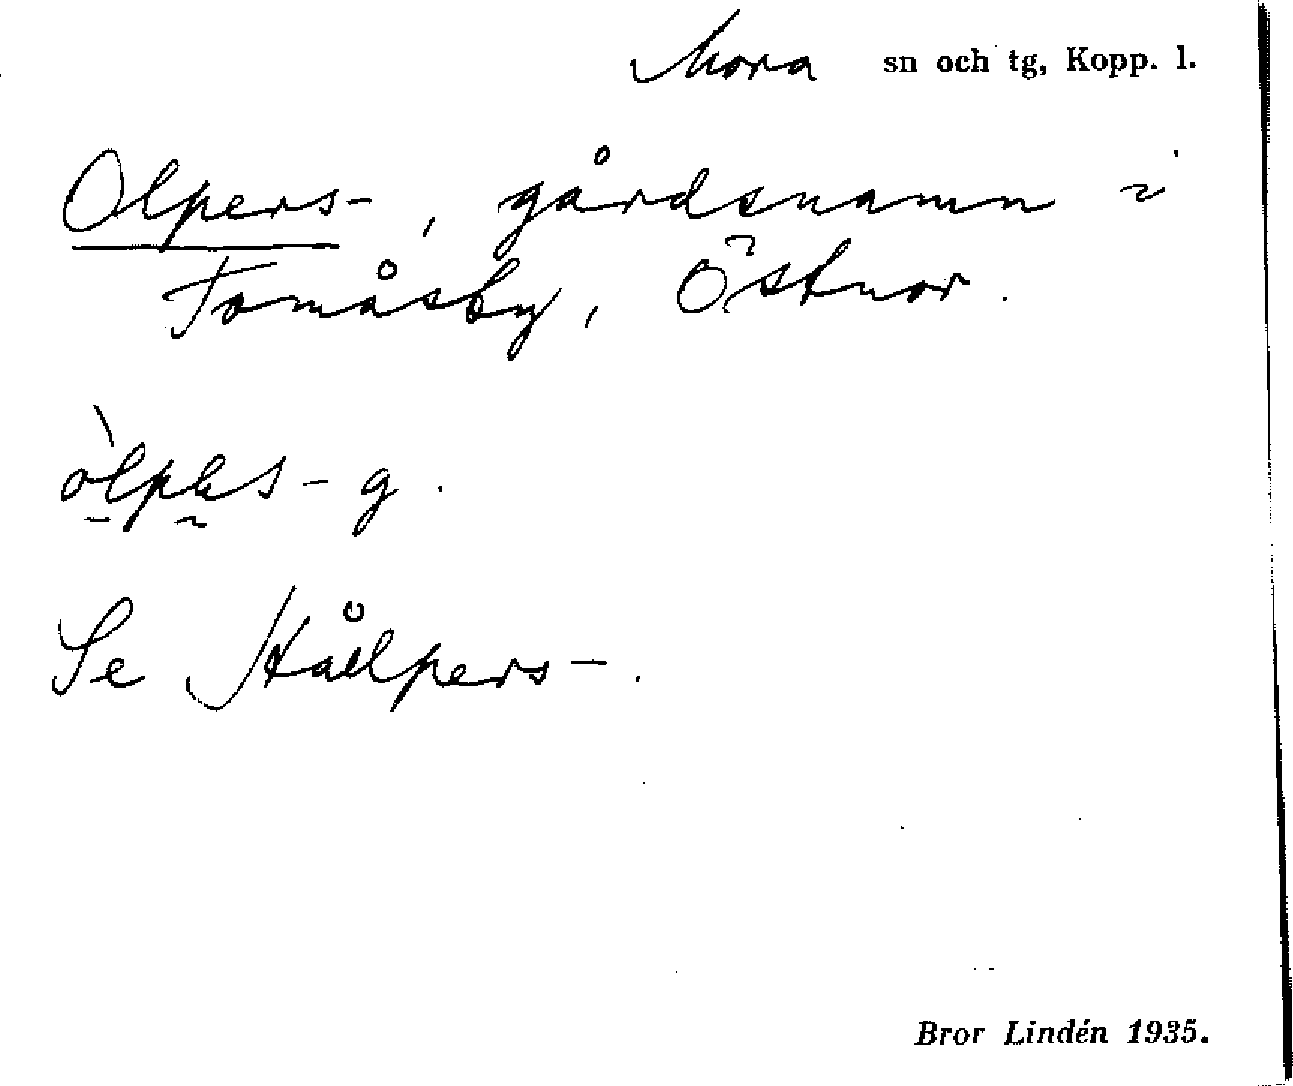 Mora sn och tg, Kopp. l.
Olpers-, gårdsnamn i
Tomåsby, Östnor.
Se Hållpers-.
Bror Lindén 1935.